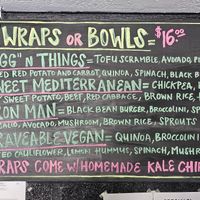 WRAPS OR BOWLS = $16.00
GG" N THINGS = TOFU SCRAMBLE, AVOCADO, P
ED RED POTATO AND CARROT, QUINOA, SPINACH, BLACK B
WEET MEDITERRANEAN = CHICKPEA,
SWEET POTATO, BEET, RED CABBAGE, BROWN RICE,
ON MAN = BLACK BEAN BURGER, BROCCOLINI, SP
AVOCADO, MUSHROOM, BROWN RICE, SPROUTS
RAVEABLE VEGAN = QUINOA, BROCCOLINI
ED CAULIFLOWER, HUMMUS, SPINACH, MUSH
RAPS COME W/ HOMEMADE KALE CHIP